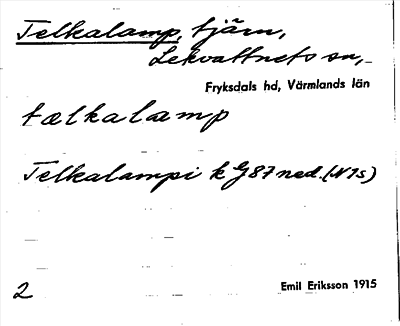 Telkalamp, tjärn,
Lekvattnets sn,
Fryksdals hd, Värmlands län
tælkalamp
Telkalampi k G87 ned. (N1s)
2
Emil Eriksson 1915